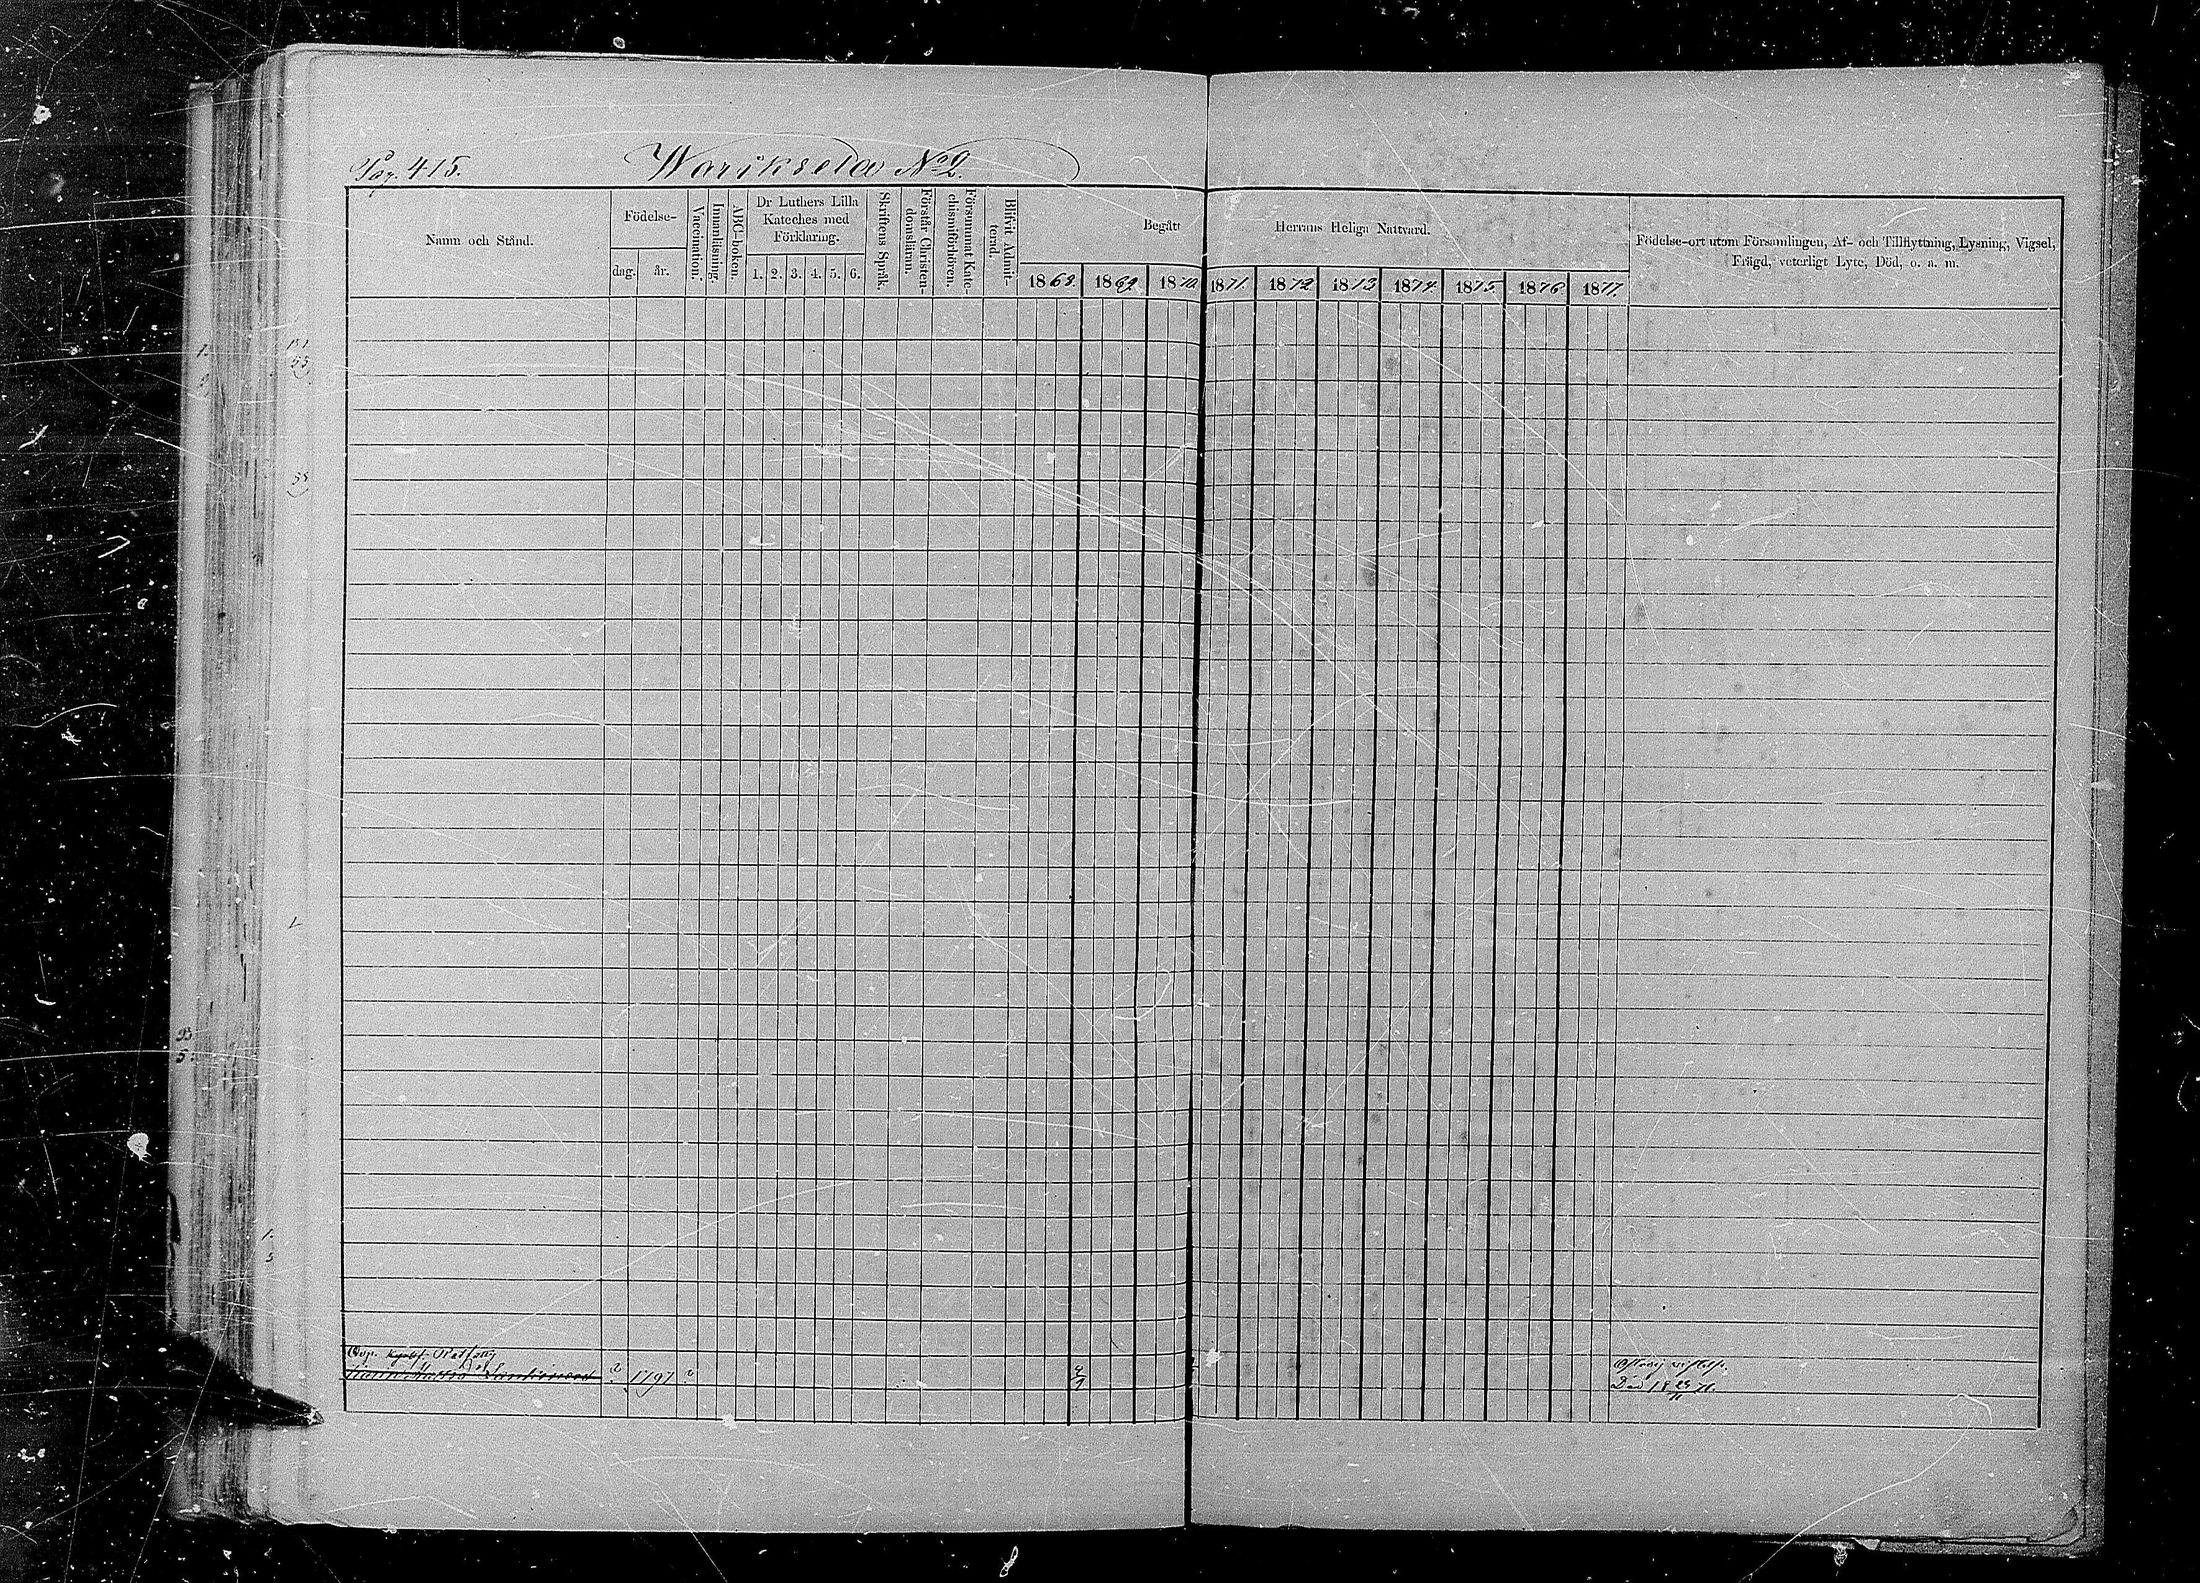 Pag. 415.
Warikselä No 2.
Namn och Stånd.
Födelse-
dag.
år.
Vaccination.
Innanläsning.
ABC-boken.
Dr Luthers Lilla
Kateches med
Förklaring.
1. 2. 3. 4. 5. 6.
Skriftens Språk.
Förstår Christen-
domsläran.
Försummat Kate-
chismiförhören.
Blifvit Admit-
terad.
Begått Herrans Heliga Nattvard.
1868. 1869. 1870. 1871. 1872. 1873. 1874. 1875. 1876. 1877.
Födelse-ort utom Församlingen, Af- och Tillflyttning, Lysning, Vigsel,
Frägd, veterligt Lyte, Död, o. s. m.
1797
Död